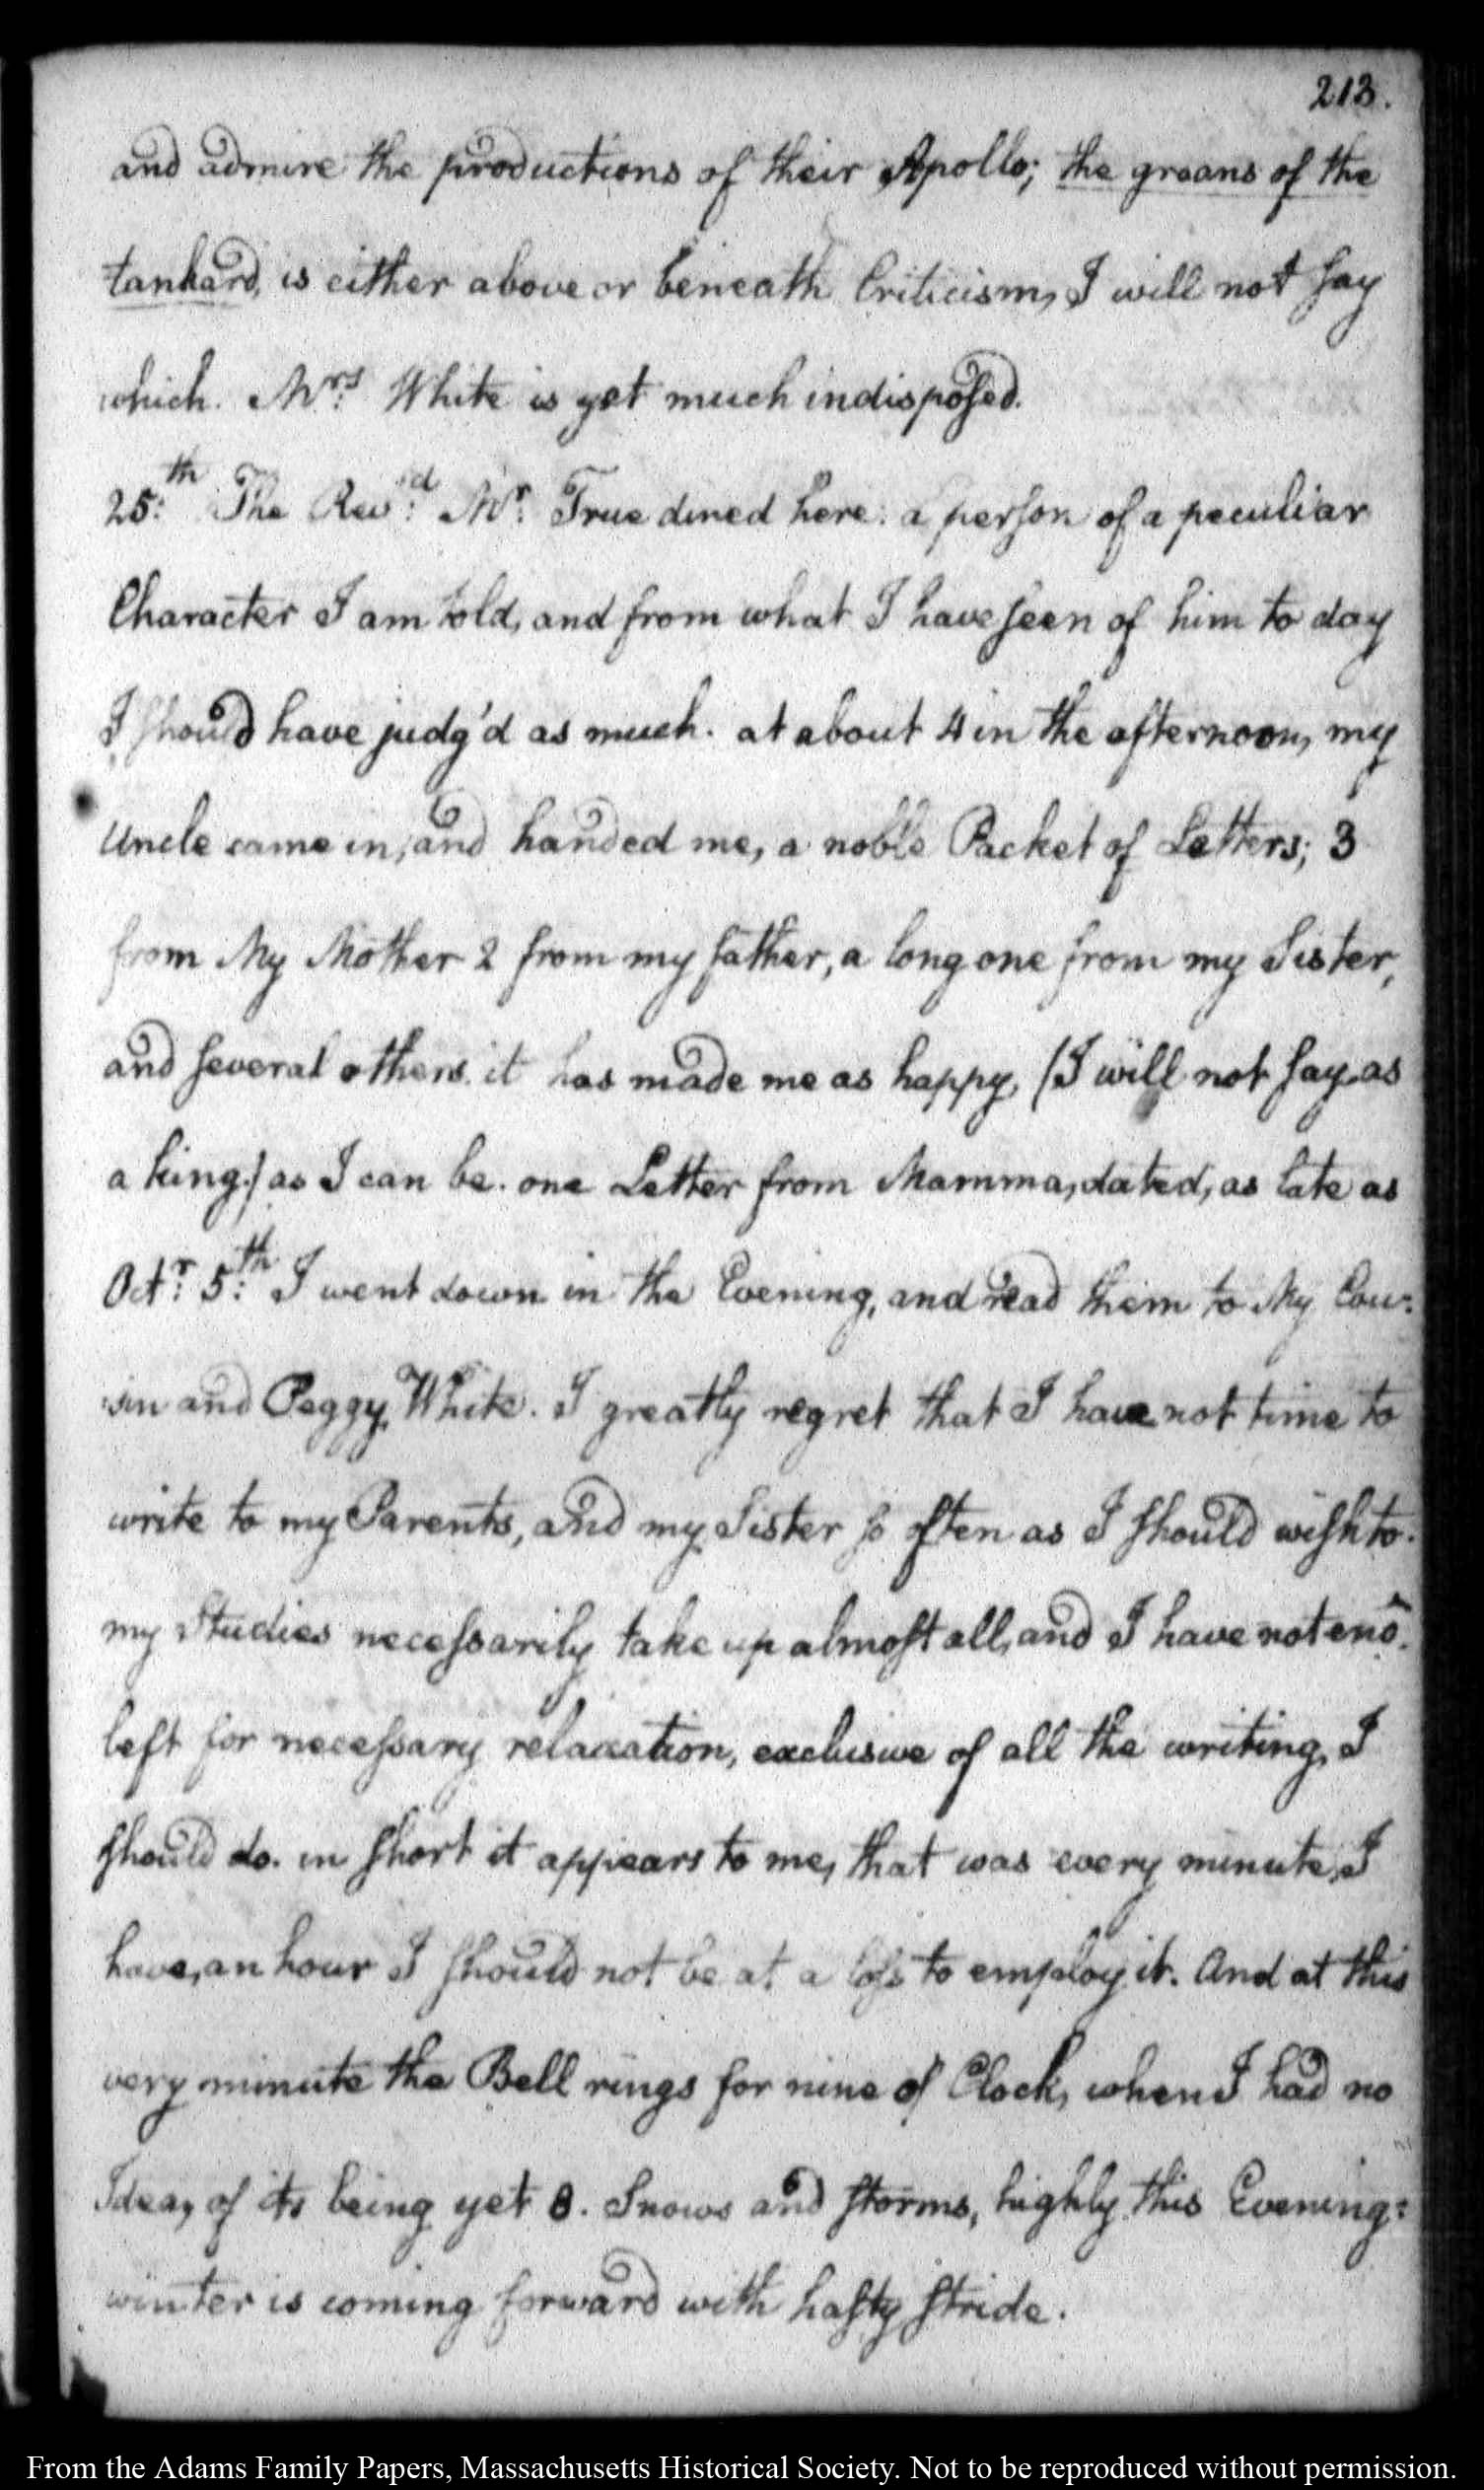 213.
and admire the productions of their Apollo; the groans of the
tankard, is either above or beneath Criticism, I will not say
which. Mrs. White is yet much indisposed.
25.th The Revd. Mr. True dined here. a person of a peculiar
Character I am told, and from what I have seen of him to day
I should have judg'd as much. at about 4 in the afternoon, my
Uncle came in, and handed me, a noble Packet of Letters; 3
from My Mother 2 from my father, a long one from my Sister,
and several others. it has made me as happy, (I will not say as
a king.) as I can be. one Letter from Mamma, dated, as late as
Octr. 5.th I went down in the Evening, and read them to My Cou-
sin and Peggy White. I greatly regret that I have not time to
write to my Parents, and my Sister so often as I should wish to.
my Studies necessarily take up almost all, and I have not eno'
left for necessary relaxation, exclusive of all the writing, I
should do. in short it appears to me, that was every minute, I
have, an hour I should not be at a loss to employ it. And at this
very minute the Bell rings for nine of Clock, when I had no
Idea, of its being yet 8. Snows and storms, highly this Evening:
winter is coming forward with hasty stride.
From the Adams Family Papers, Massachusetts Historical Society. Not to be reproduced without permission.